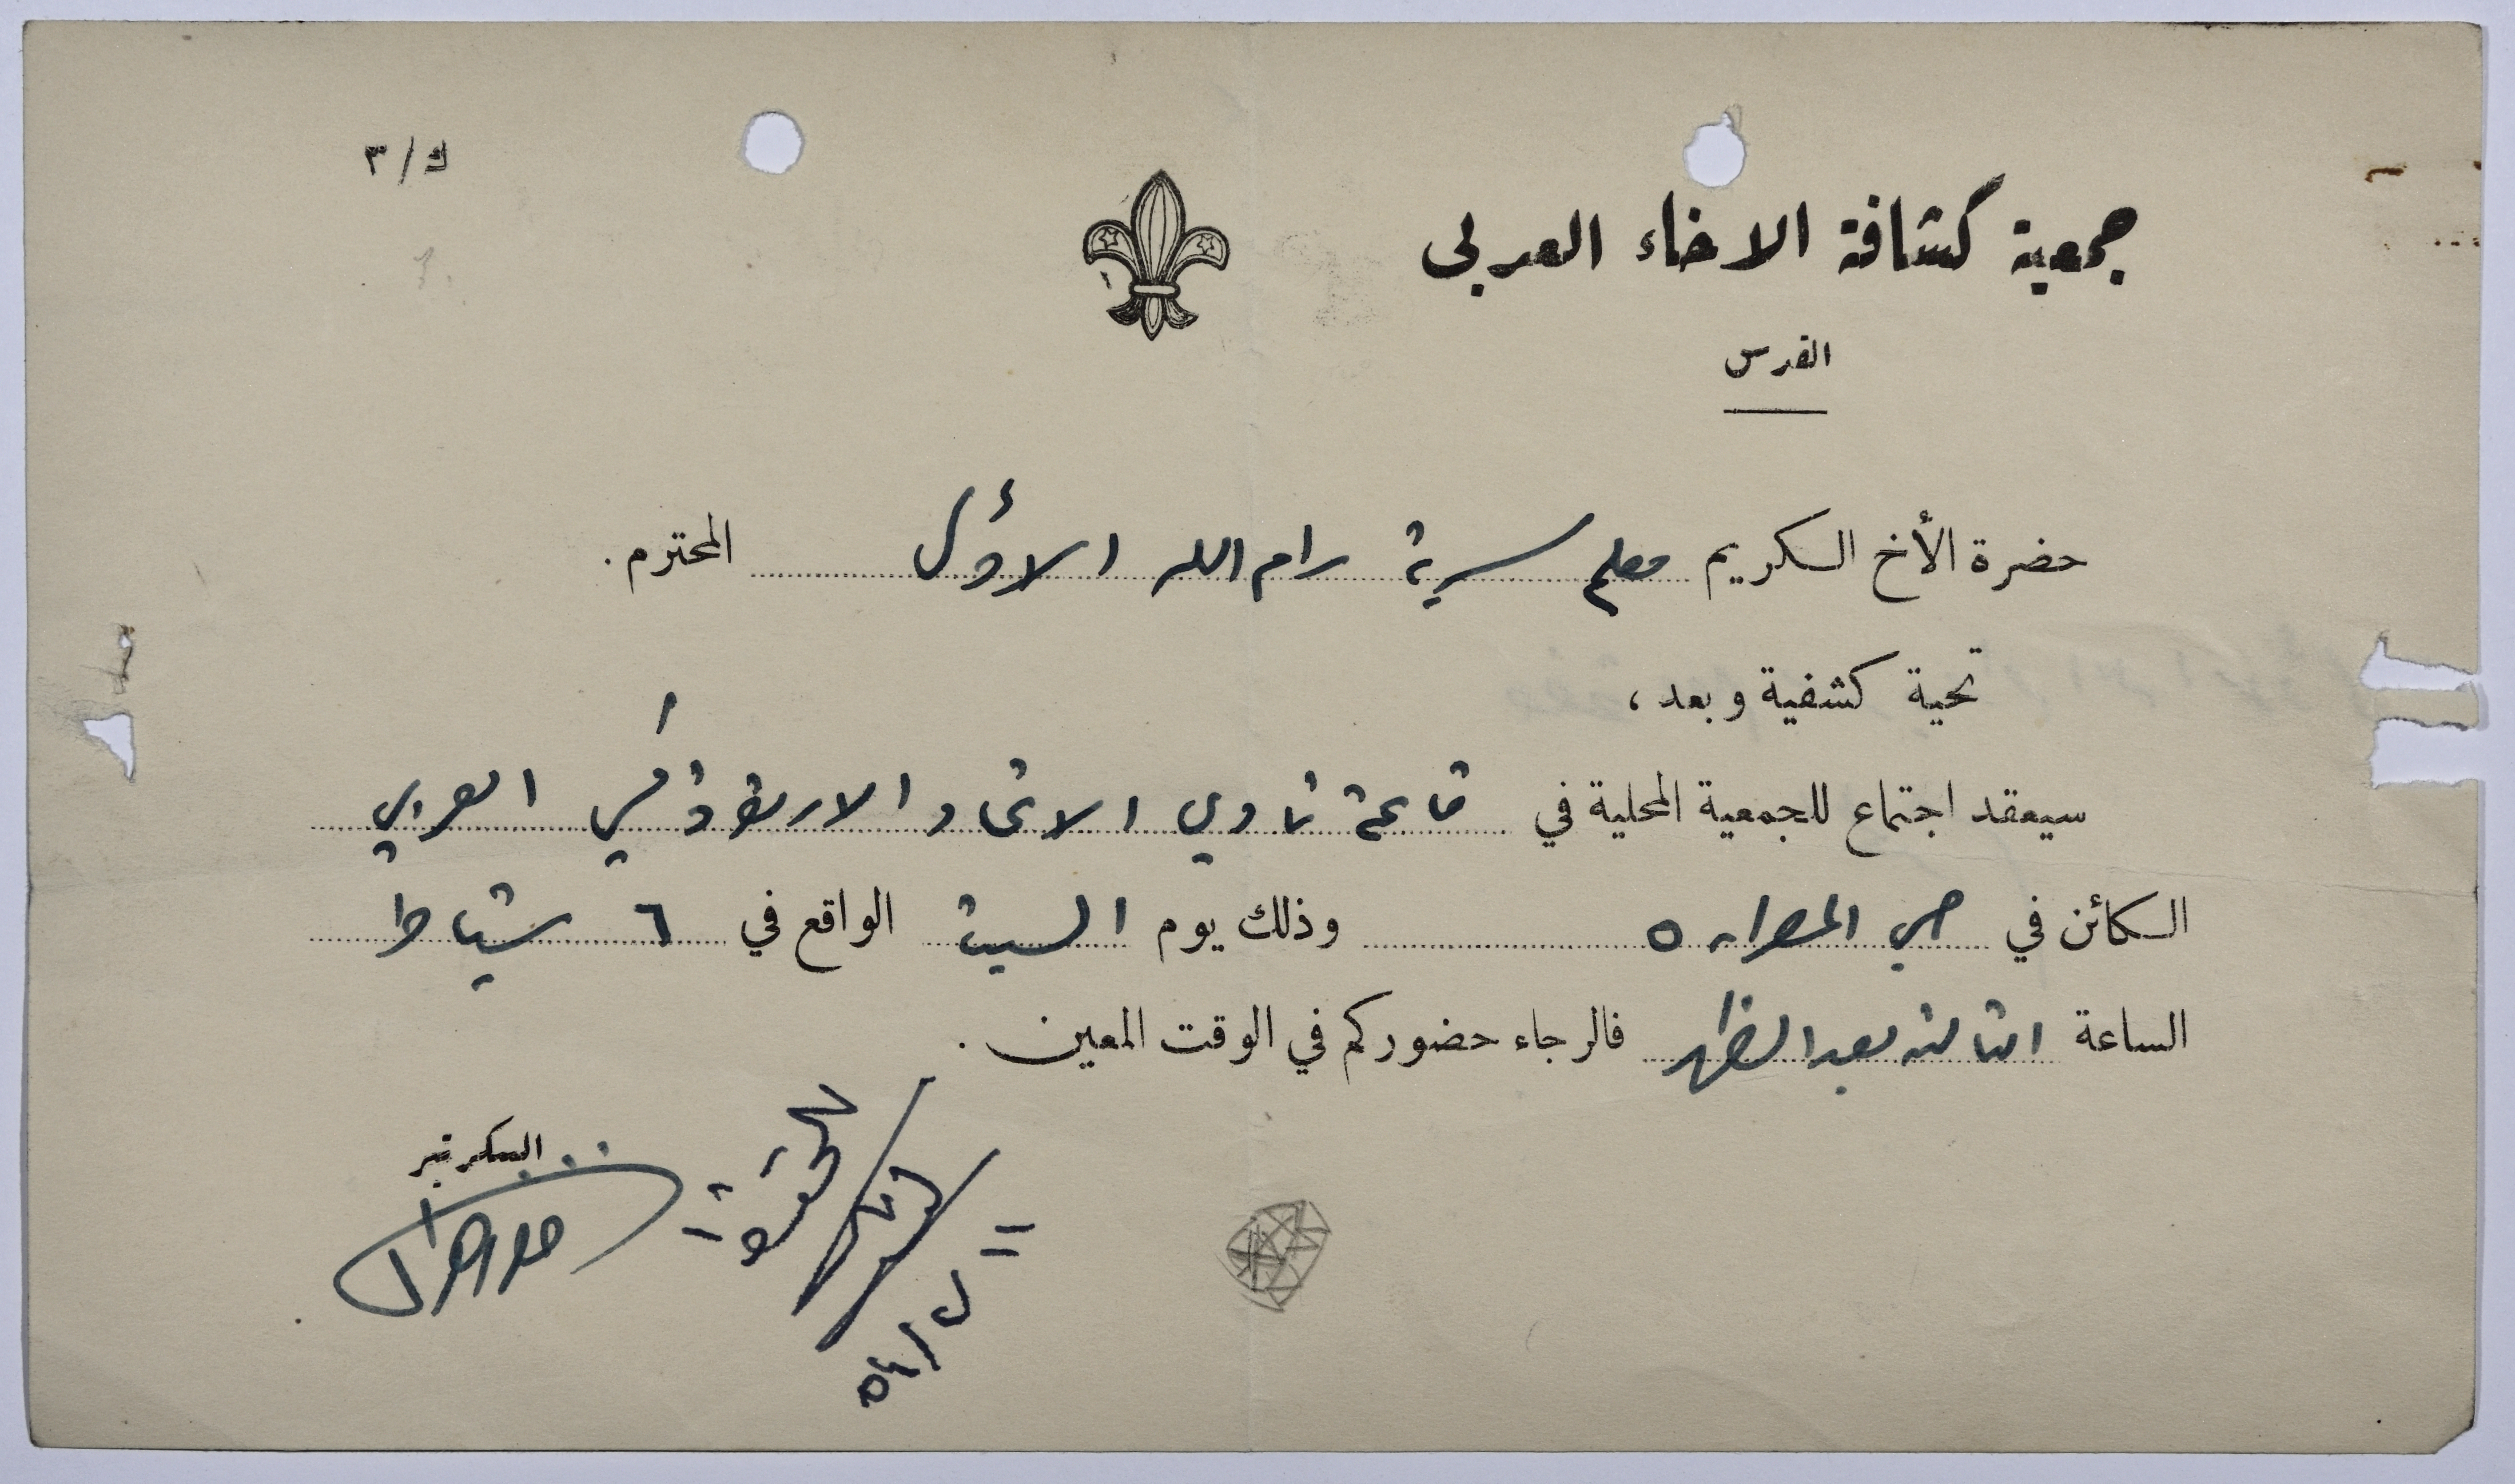 ك/٣
جمعية كشافة الاخاء العربي
القدس
حضرة الأخ الكريم معلم سرية رام الله الاول المحترم.
تحية كشفية وبعد،
سيعقد اجتماع للجمعية المحلية في قاعة نادي الاتحاد الارثوذكسي العربي
الكائن في حي المصراره وذلك يوم السبت الواقع في ٦ شباط
الساعة الثالثة بعد الظهر فالرجاء حضوركم في الوقت المعين.
السكرتير